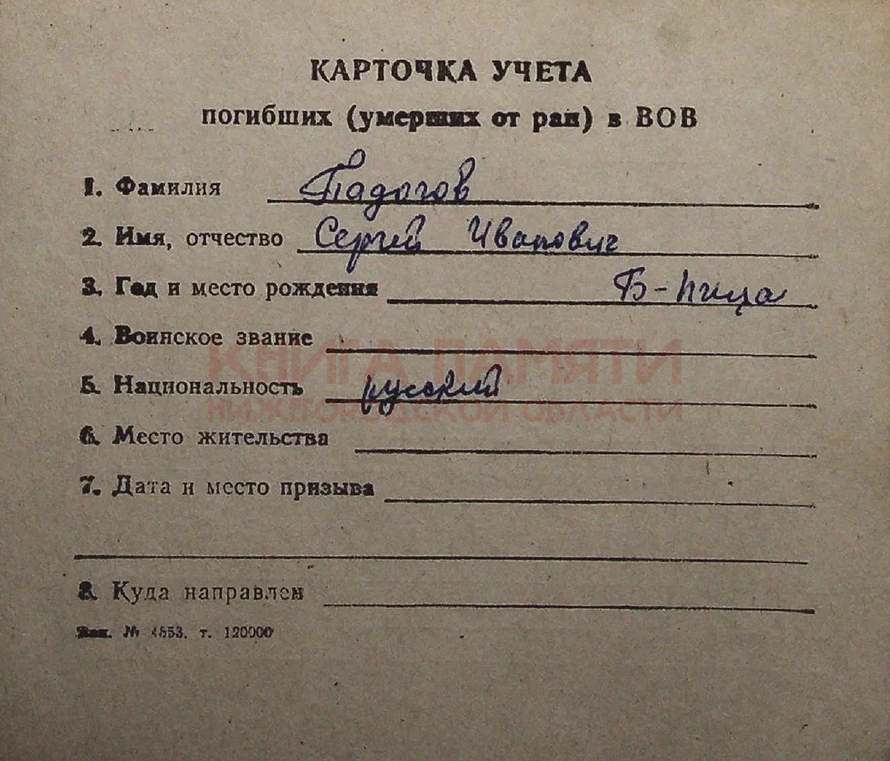 КАРТОЧКА УЧЕТА
погибших (умерших от ран) в ВОВ
1. Фамилия Падогов
2. Имя, отчество Сергей Иванович
3. Год и место рождения Б-
4. Воинское звание
КНИГА ПАМЯТИ
5. Национальность русский
НИЖЕГОРОДСКОЙ ОБЛАСТИ
6. Место жительства
7. Дата и место призыва
8. Куда направлен
Зак. № 4853. т. 120000